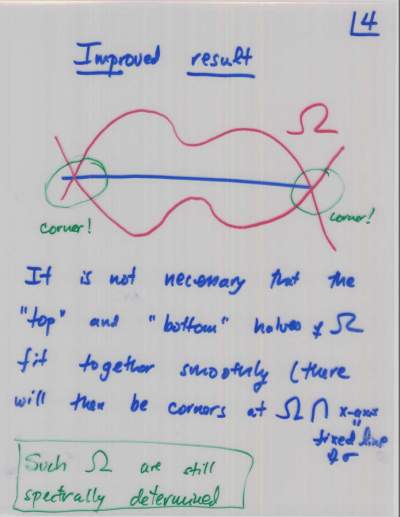 4
Improved result
Ω
corner!
corner!
It is not necessary that the
"top" and "bottom" halves of Ω
fit together smoothly (there
will then be corners at Ω ∩ x-axis
"
fixed line
of σ
Such Ω are still
spectrally determined